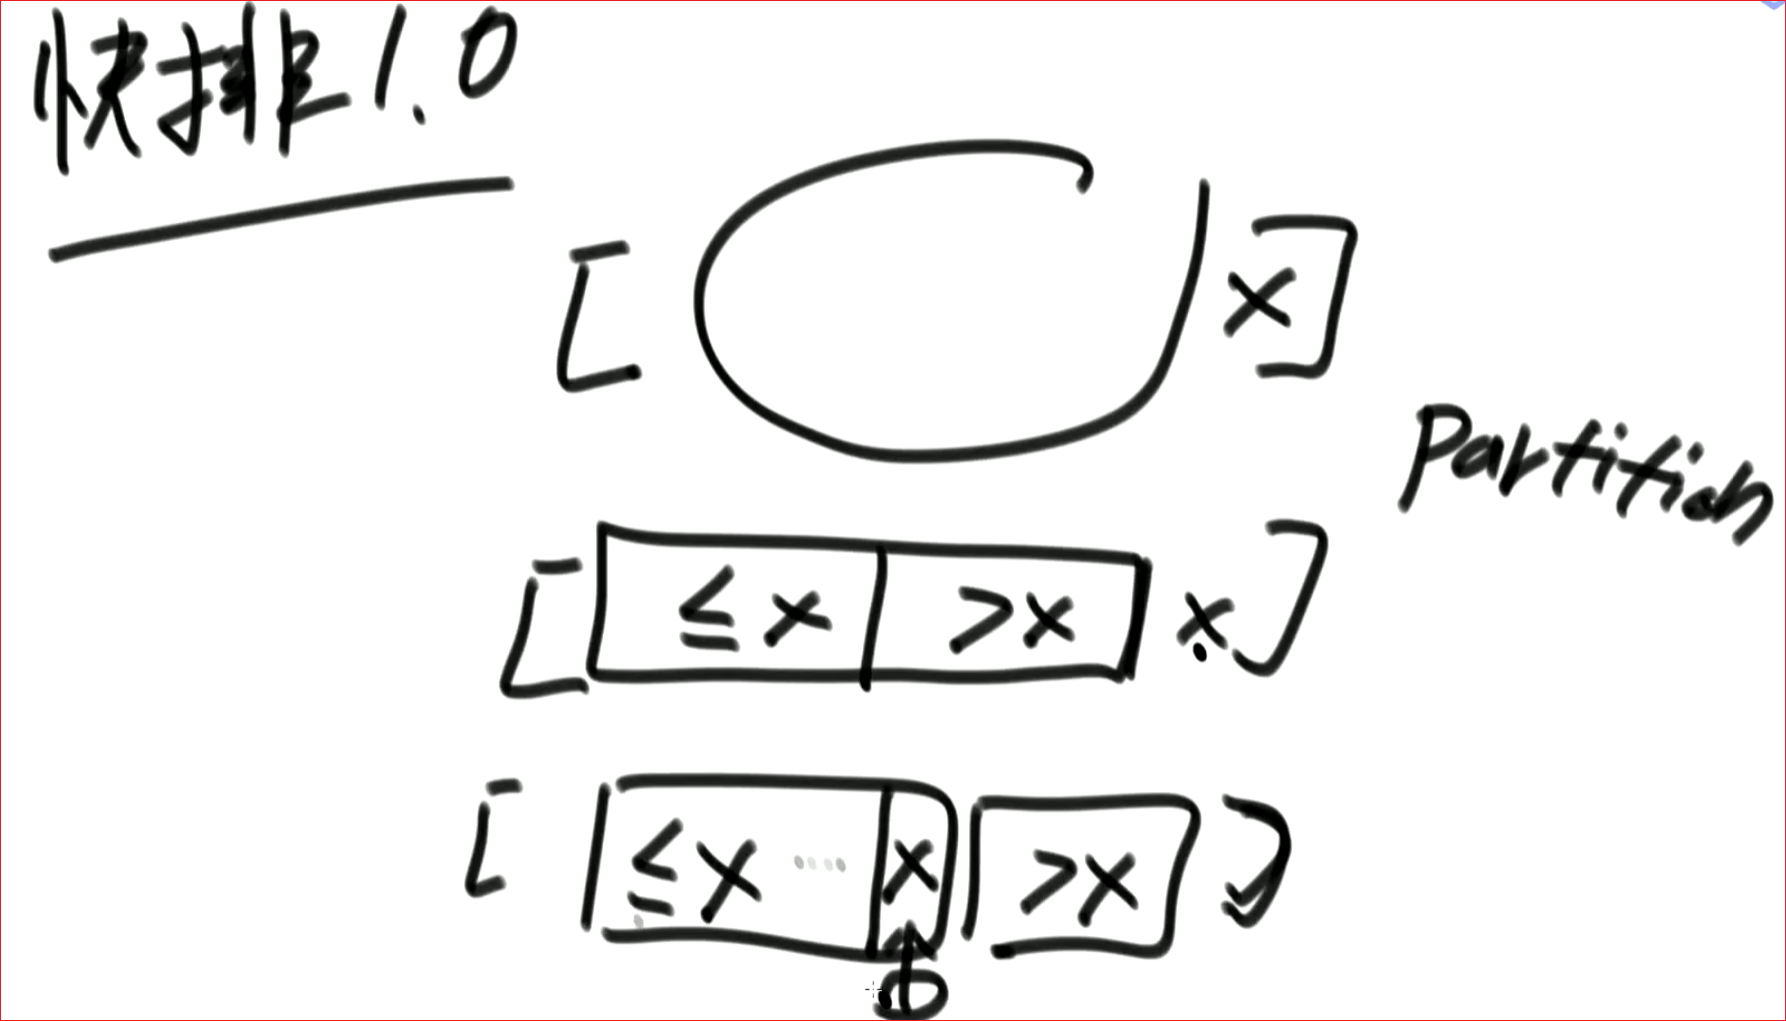 快排1.0
[ x]
Partition
[ ≤x >x x ]
[ ≤x .... x >x ]